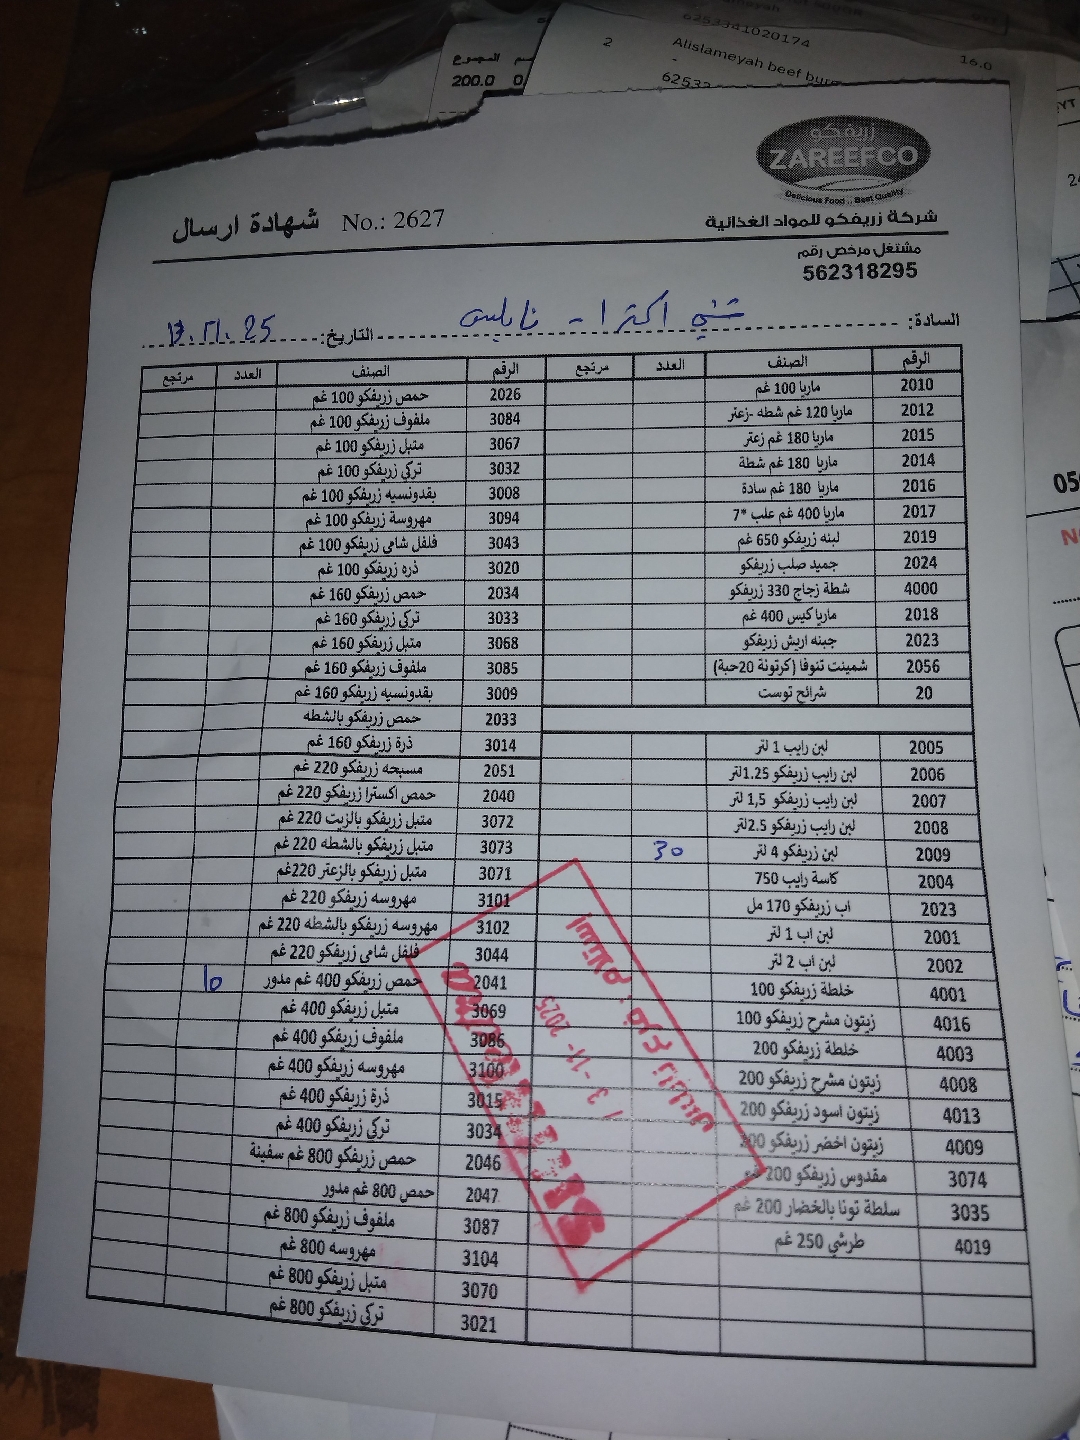 المجموع
200.0
6253341020174
2 Alislameyah beef burg
16.0
زريفكو
ZAREEFCO
Delicious Food .. Best Quality
شركة زريفكو للمواد الغذائية
شهادة ارسال No.: 2627
مشتغل مرخص رقم
562318295
السادة: شني اكترا - نابلس التاريخ: 13.11.25
الرقم الصنف العدد مرتجع الرقم الصنف العدد مرتجع
2010 ماريا 100 غم 2026 حمص زريفكو 100 غم
2012 ماريا 120 غم شطه -زعتر 3084 ملفوف زريفكو 100 غم
2015 ماريا 180 غم زعتر 3067 متبل زريفكو 100 غم
2014 ماريا 180 غم شطة 3032 تركي زريفكو 100 غم
2016 ماريا 180 غم سادة 3008 بقدونسيه زريفكو 100 غم
2017 ماريا 400 غم علب *7 3094 مهروسة زريفكو 100 غم
2019 لبنه زريفكو 650 غم 3043 فلفل شامي زريفكو 100 غم
2024 جميد صلب زريفكو 3020 ذره زريفكو 100 غم
4000 شطة زجاج 330 زريفكو 2034 حمص زريفكو 160 غم
2018 ماريا كيس 400 غم 3033 تركي زريفكو 160 غم
2023 جبنه اريش زريفكو 3068 متبل زريفكو 160 غم
2056 شمينت تنوفا (كرتونة 20حبة) 3085 ملفوف زريفكو 160 غم
20 شرائح توست 3009 بقدونسيه زريفكو 160 غم
2033 حمص زريفكو بالشطه
2005 لبن رايب 1 لتر 3014 ذرة زريفكو 160 غم
2006 لبن رايب زريفكو 1.25لتر 2051 مسبحه زريفكو 220 غم
2007 لبن رايب زريفكو 1,5 لتر 2040 حمص اكسترا زريفكو 220 غم
2008 لبن رايب زريفكو 2.5لتر 3072 متبل زريفكو بالزيت 220 غم
2009 لبن زريفكو 4 لتر 30 3073 متبل زريفكو بالشطه 220 غم
2004 كاسة رايب 750 3071 متبل زريفكو بالزعتر 220غم
2023 اب زريفكو 170 مل 3101 مهروسه زريفكو 220 غم
2001 لبن اب 1 لتر 3102 مهروسه زريفكو بالشطه 220 غم
2002 لبن اب 2 لتر 3044 فلفل شامي زريفكو 220 غم
4001 خلطة زريفكو 100 2041 حمص زريفكو 400 غم مدور 10
4016 زيتون مشرح زريفكو 100 3069 متبل زريفكو 400 غم
4003 خلطة زريفكو 200 3086 ملفوف زريفكو 400 غم
4008 زيتون مشرح زريفكو 200 3100 مهروسه زريفكو 400 غم
4013 زيتون اسود زريفكو 200 3015 ذرة زريفكو 400 غم
4009 زيتون اخضر زريفكو 200 3034 تركي زريفكو 400 غم
3074 مقدوس زريفكو 200 غم 2046 حمص زريفكو 800 غم سفينة
3035 سلطة تونا بالخضار 200 غم 2047 حمص 800 غم مدور
4019 طرشي 250 غم 3087 ملفوف زريفكو 800 غم
3104 مهروسه 800 غم
3070 متبل زريفكو 800 غم
3021 تركي زريفكو 800 غم
13 -11- 2025